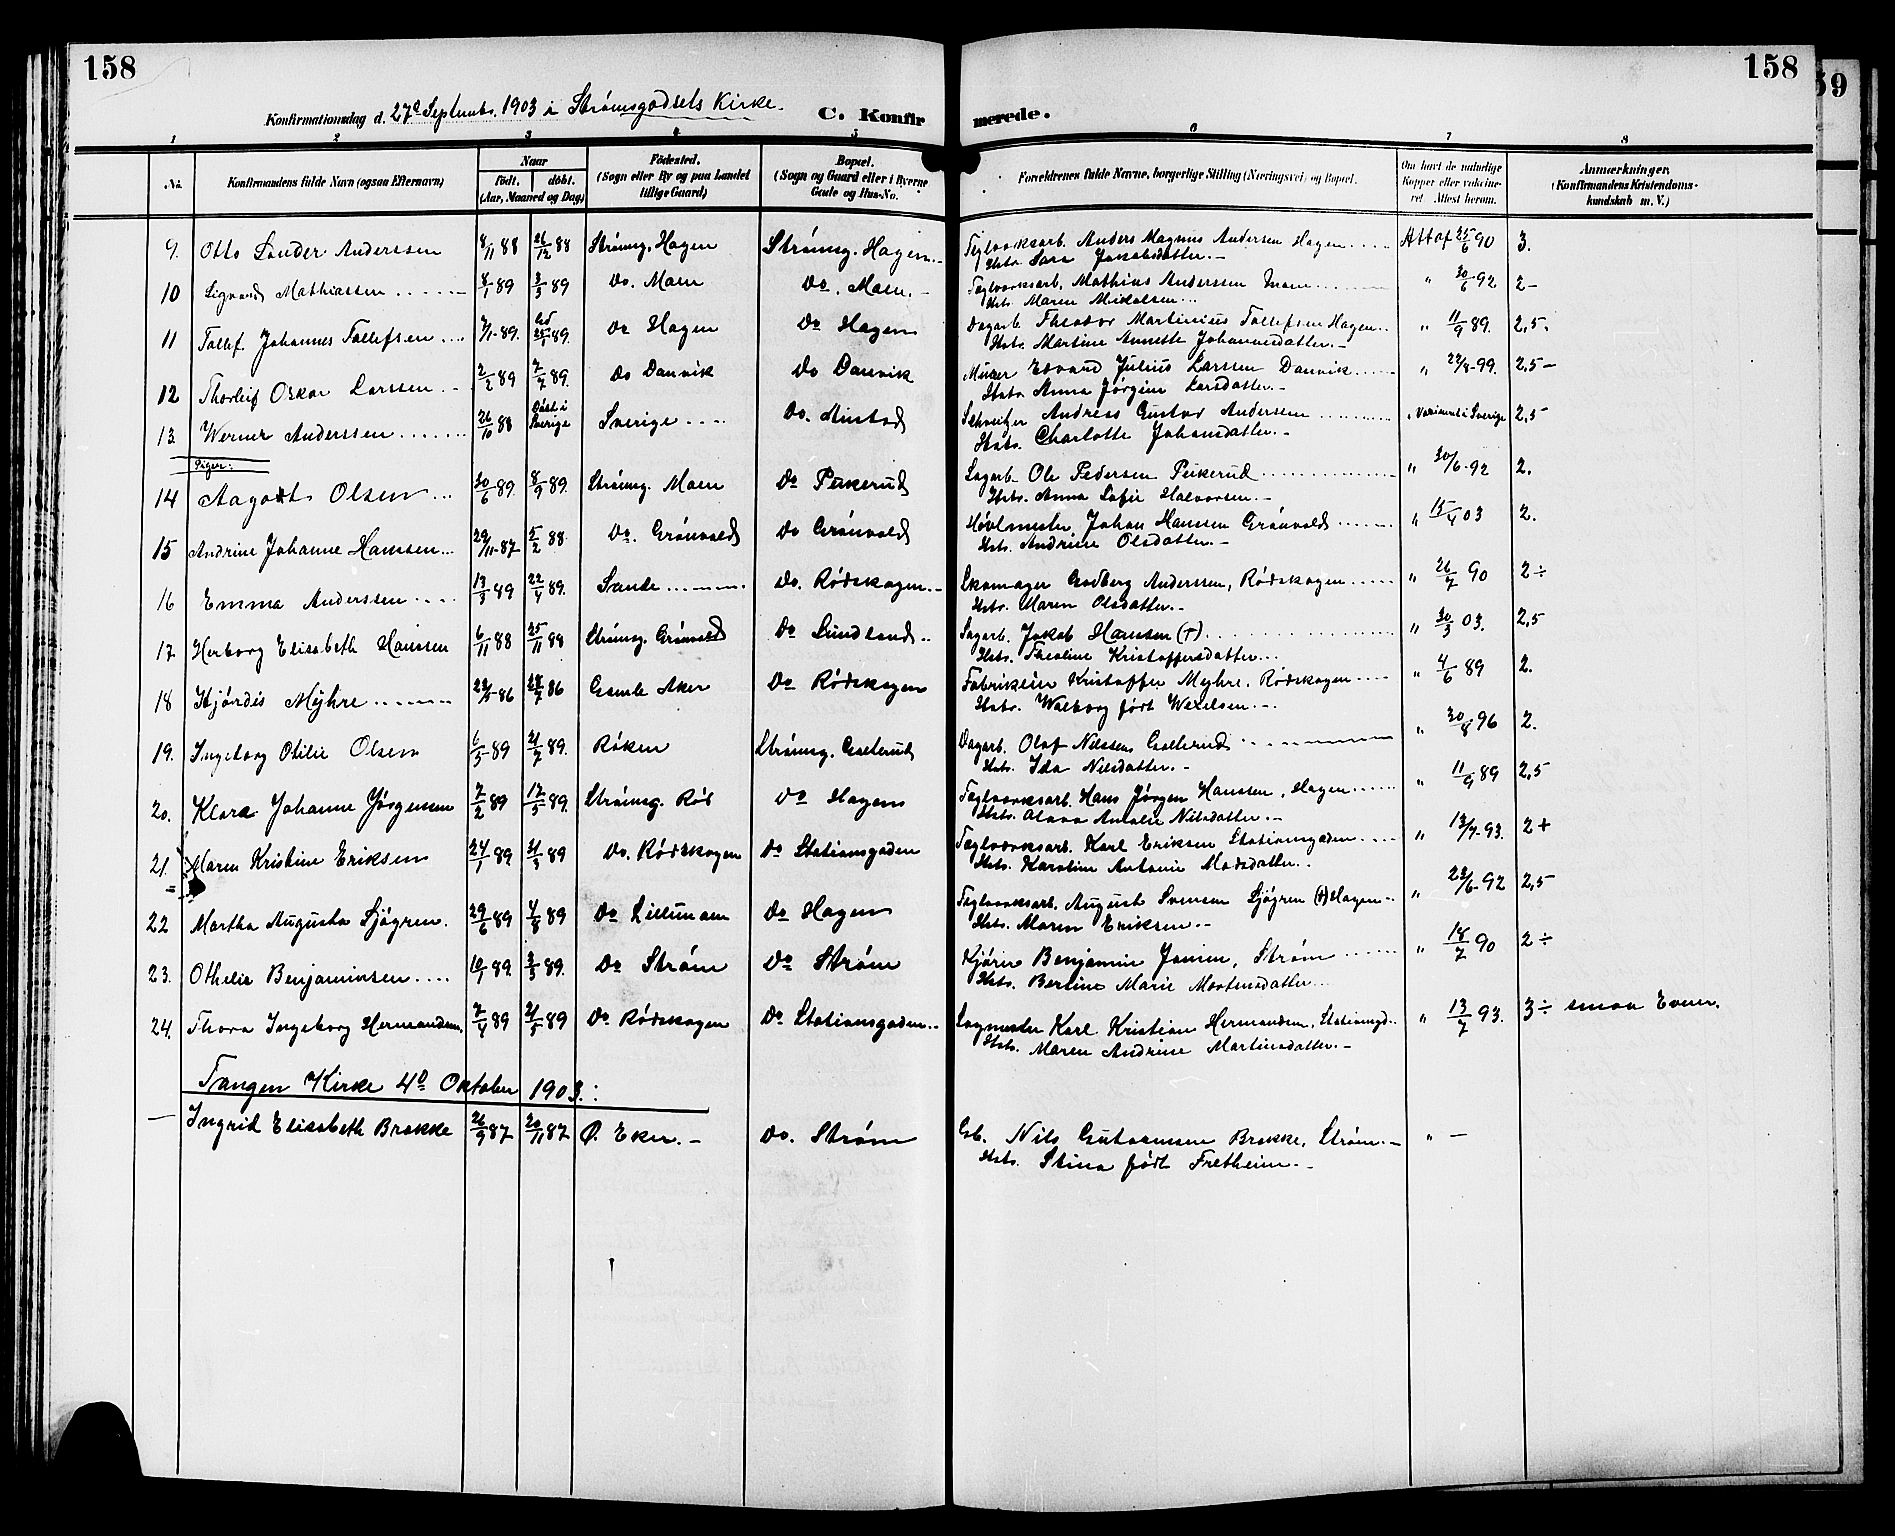 158
158
59
Konfirmationsdag d. 27de Septembr. 1903 i Strømsgodsets Kirke.
C. Konfir
merede.
1 2 3 4 5 6 7 8
No. Konfirmandens fulde Navn (ogsaa Efternavn) Naar født. døbt. (Aar, Maaned og Dag) Födested. (Sogn eller By og paa Landet tillige Gaard) Bopæl. (Sogn og Gaard eller i Byerne Gade og Hus-No. Forældrenes fulde Navne, borgerlige Stilling (Næringsvei) og Bopæl. Om havt de naturlige Kopper eller vakcineret. Attest herom. Anmærkninger, (Konfirmandens Kristendomskundskab m. V.)
9. Otto Lauder Anderssen 8/11 88 26/12 88 Strømsg. Hagen Strømsg. Hagen Teglværksarb. Anders Magnus Andersen Hagen Att af 25/6 90 3.
Hstr. Sara Jakobsdatter.
10 Sigvard Mathiassen 8/1 89 3/3 89 Do. Moen Do. Moen. Teglværksarb. Mathias Anderssen Moen " 30/6 92 2-
Hstr. Maren Mikalsen
11 Tollef Johannes Tollefsen 7/1-89. 25/1 89. Do Hagen Do Hagen Dagarb. Theodor Martinius Tollefsen Hagen " 11/9 89. 2,5.
Hstr. Martine Annette Johannesdatter.
12 Thorleif Oskar Larssen 2/2 89 7/7 89. Do Danvik Do Danvik Murer Edvard Julius Larssen Danvik " 22/8-99. 2,5-
Hstr. Anna Jørgine Larsdatter.
13. Werner Anderssen 26/10 88 Døbt i Sverige Sverige Do. Austad Schweitzer Andreas Gustav Andersen " Vaccineret i Sverige 2,5
Hstr. Charlotte Johansdatter.
Piger:
14 Aagot Olsen 30/6 89. 8/9 89. Strømsg. Moen Do Pukerud Sagarb. Ole Pedersen Pukerud " 30/6-92 2.
Hstr. Anna Sofie Halvorsen.
15 Andrine Johanne Hansen 29/11-87 5/2 88. Do. Grønvold Do Grønvold Høvlmester Johan Hansen Grønvold " 15/4 03 2.
Hstr. Andrine Olsdatter.
16 Emma Anderssen 13/3 89 22/4 89. Sande Do. Rødskogen Skomager Godberg Anderssen, Rødskogen " 26/7 90 2÷
Hstr. Maren Olsdatter.
17. Herborg Elisabeth Hanssen 6/11 88 25/11 88 Strømsg. Grønvold Do Sundland Sagarb. Jakob Hanssen (†) " 30/3 03. 2,5
Hstr. Theoline Kristoffersdatter
18 Hjørdis Myhre 86 86 Gamle Aker Do Rødskogen Fabrikeier Kristoffer Myhre, Rødskogen " 4/6 89 2.
Hstr. Walborg født Wexelsen.
19. Ingeborg Otilie Olsen 6/5 89 21/7 89. Røken Strømsg. Galterud Dagarb. Olaf Nilssen Galterud " 30/8 96 2.
Hstr. Ida Nilsdatter.
20. Klara Johanne Jørgensen 7/2 89 12/5 89. Strømsg. Rød Do Hagen Teglværksarb. Hans Jørgen Hanssen, Hagen " 11/9 89 2,5
Hstr. Olava Amalie Nilsdatter.
21. Maren Kristine Eriksen 24/1 89 31/3 89 Do. Rødskogen Do Stationsgaden Teglværksarb. Karl Eriksen Stationsgaden " 13/7-93. 2+
Hstr. Karoline Antonie Madsdatter.
22 Martha Augusta Sjøgren. 29/6 89 4/8 89 Do Lillemoen Do Hagen Teglværksarb. August Svensen Sjøgren (†) Hagen " 23/6-92 2,5
Hstr. Maren Eriksen.
23. Othelie Benjaminsen 10/1 89. 3/3 89. Do Strøm Do Strøm Kjører Benjamin Jansen, Strøm " 18/7 90 2÷
Hstr. Bertine Marie Mortensdatter
24. Thora Ingeborg Hermansen. 7/4 89 21/5 89 Do Rødskogen Do Stationsgaden Sagmester Karl Kristian Hermansen, Stationsgd. " 13/7 93. 3÷ smaa Evner.
Hstr. Maren Andrine Martinsdatter.
Tangen Kirke 4de Oktober 1903.:
— Ingrid Elisabeth Brakke 26/9 87 20/11 87 Ø. Eker. Do. Strøm Gb. Nils Brakke, Strøm. " —
Hstr. Stina født Fretheim.